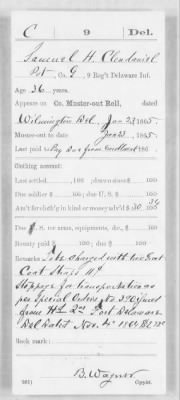 C 9 Del.
Samuel H. Clendaniel
Pvt, Co. G, 9 Reg't Delaware Inf.
Age 36 years.
Appears on Co. Muster-out Roll, dated
Wilmington Del, Jan 23, 1865.
Muster-out to date Jan 23, 1865.
Last paid to Pay due from enrollment 186
Clothing account:
Last settled , 186 ; drawn since $ 100
Due soldier $ 100; due U. S. $ 100
Am't for cloth'g in kind or money adv'd $ 30 100
Due U. S. for arms, equipments, &c., $ 100
Bounty paid $ 100; due $ 100
Remarks: To be charged with Great
Coat Straps
Stoppage for transportation as
per Special Orders No
from Hd Qrs Fort Delaware
Del Dated Nov. 4th 1864
Book mark:
B. Wagner
(361) Copyist.